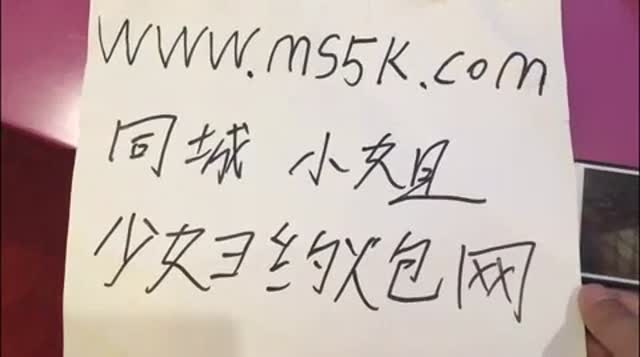 www.ms5k.com
同城 小姐
少妇约炮网